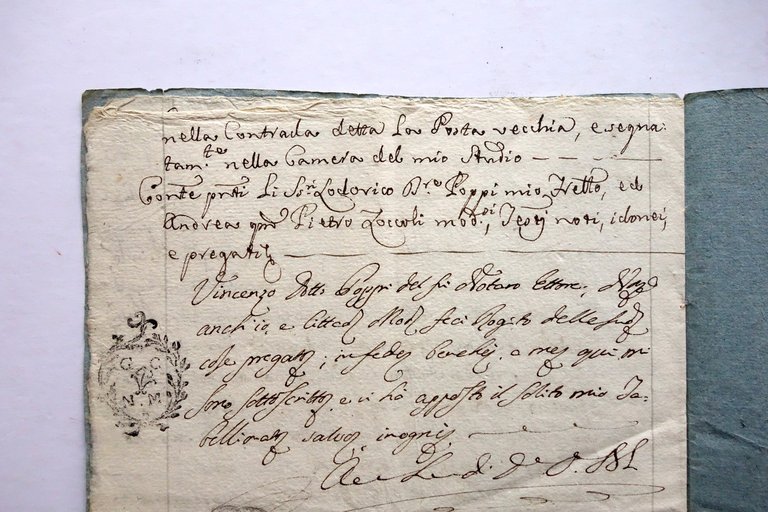 nella Contrada detta La Posta vecchia, e segna:
tam.te nella Camera del mio Studio — — —
Conte pnti Li Ssri Lodovico Poppi mio Frello, ed
Andrea qm Pietro Zoccoli mod.si, Testj noti, idonei,
e pregati
Vincenzo Dotto Poppi del fù Notaro Ettore,
anch'io, e Cittad Mod feci Rogito delle sud
cose pregato; in fede
sono sottoscritto e vi hò apposto il solito mio Ta-
bellionato salvo
G G
N M